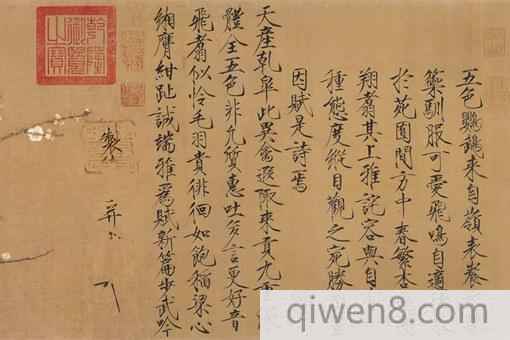 五色鸚鵡來自嶺表養
籞馴服可愛飛鳴自適
於苑囿間方中春繁杏
翔翥其上雅詫容與自
種態度縱目觀之宛勝
因賦是詩焉
天產乾皋此異禽遐陬來貢九重
體全五色非凡質惠吐多言更好音
飛翥似憐毛羽貴徘徊如飽稻粱心
緗膺紺趾誠端雅為賦新篇步武吟
製
乾隆御覽之寶
qiwen8.com